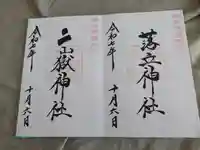 落立神社
令和七年
十月六日
山嶽神社
令和七年
十月六日